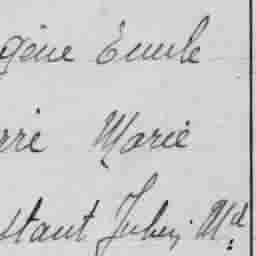 gène Emile
rre Marie
stant Julien Md